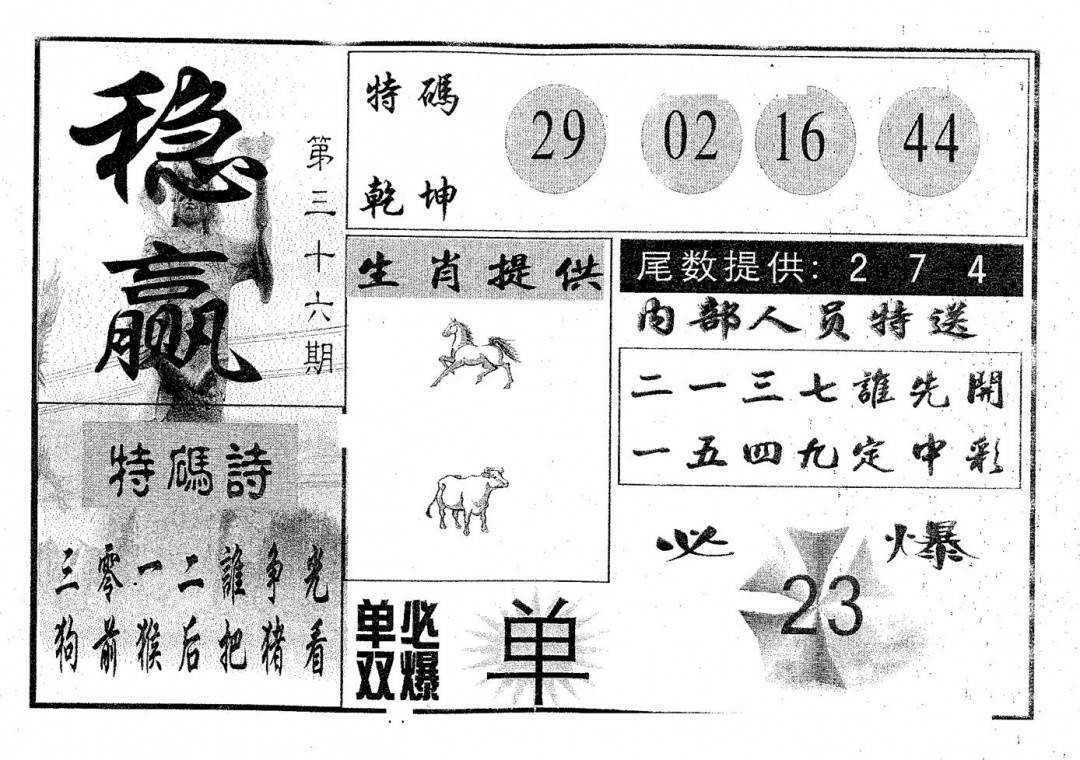 稳赢
第三十六期
特碼詩
三零一二誰爭光
狗前猴后把猪看
特碼
乾坤
29 02 16 44
生肖提供
单双
必爆
单
尾数提供: 2 7 4
内部人员特送
二一三七誰先開
一五四九定中彩
必爆
23